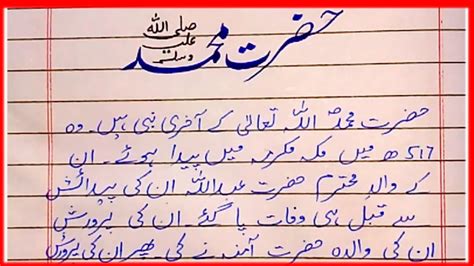 حضرت محمد صلی اللہ علیہ وسلم
حضرت محمدؐ اللہ تعالیٰ کے آخری نبی ہیں۔ وہ
517ھ میں مکہ مکرمہ میں پیدا ہوئے۔ ان
کے والدِ محترم حضرت عبداللہ ان کی پیدائش
سے قبل ہی وفات پا گئے۔ ان کی پرورش
ان کی والدہ حضرت آمنہ نے کی۔ پھر ان کی پرورش